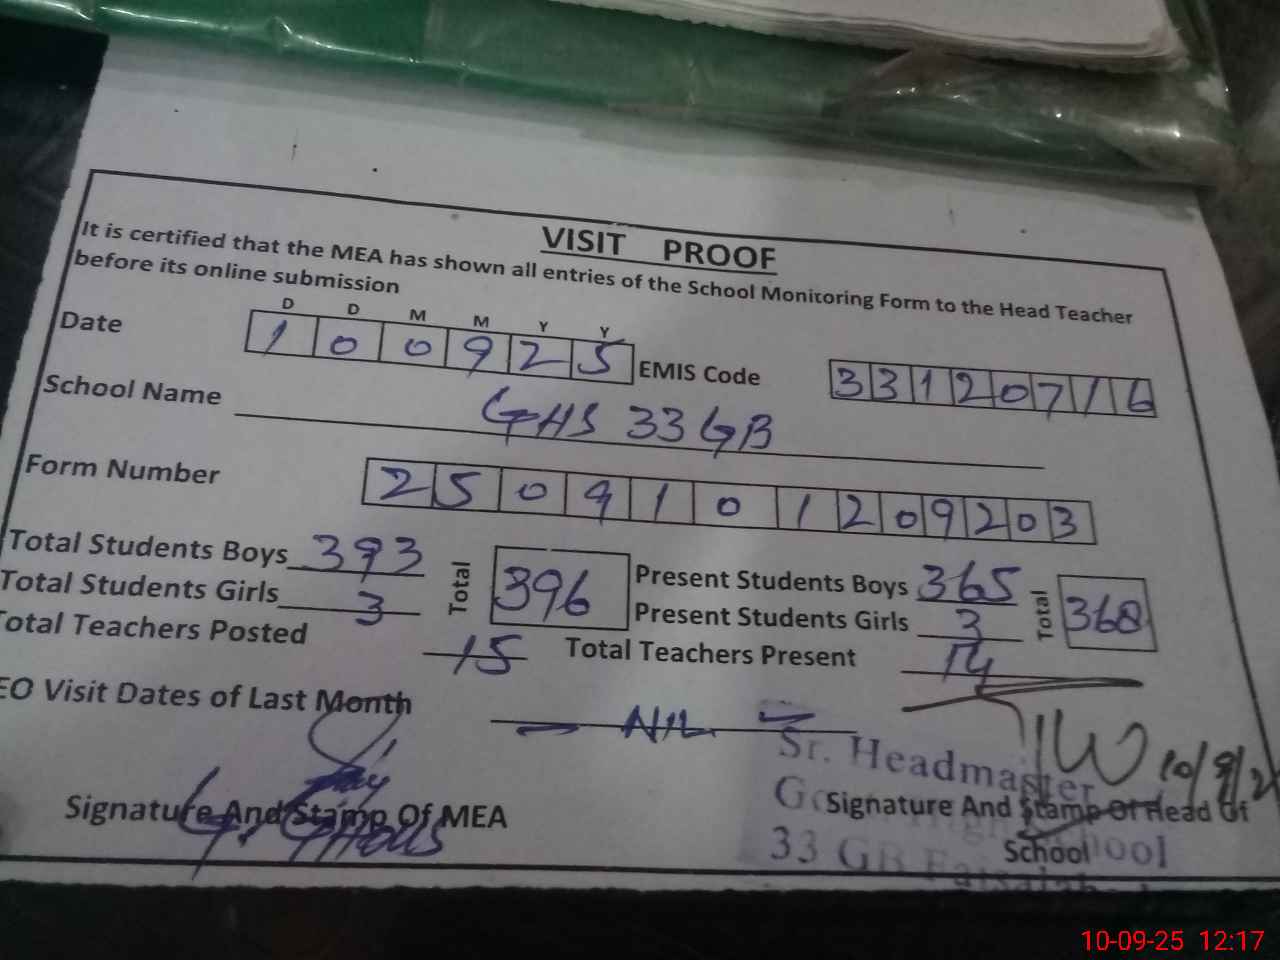 VISIT PROOF
It is certified that the MEA has shown all entries of the School Monitoring Form to the Head Teacher
before its online submission
D D M M Y Y
Date 1 0 0 9 2 5 EMIS Code 3 3 1 2 0 7 1 6
School Name GHS 33 GB
Form Number 2 5 0 9 1 0 1 2 0 9 2 0 3
Total Students Boys 393 Total 396 Present Students Boys 365 Total 368
Total Students Girls 3 Present Students Girls 3
Total Teachers Posted 15 Total Teachers Present 14
EO Visit Dates of Last Month NIL
Sr. Headmaster
10/9/2
Signature And Stamp Of MEA Signature And Stamp Of Head Of
School
33 GB Faisalabad
10-09-25 12:17